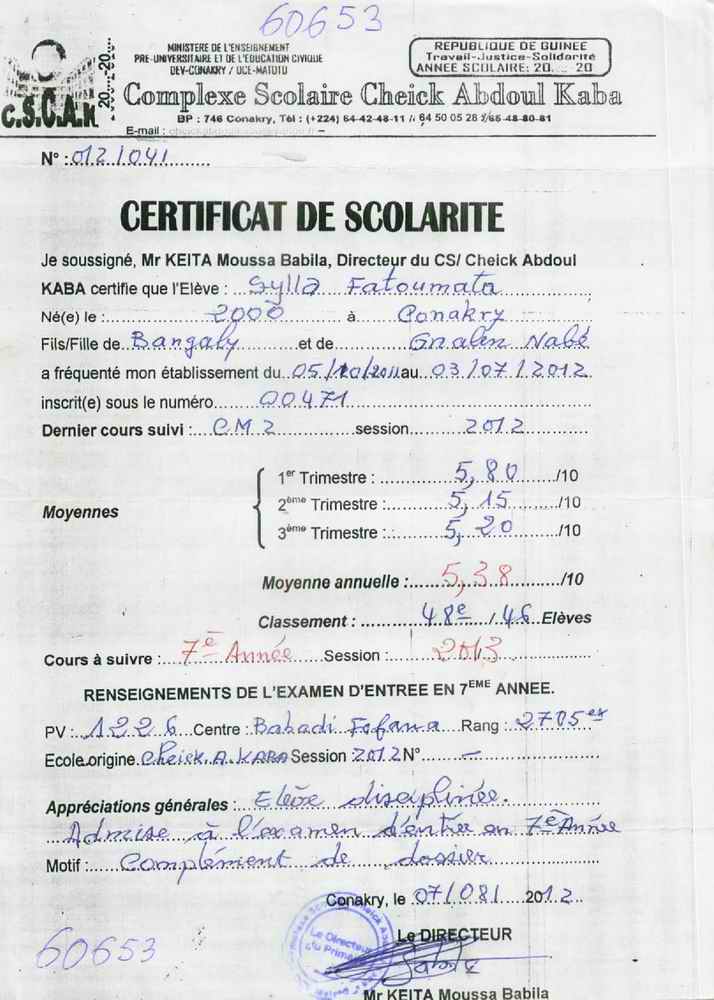 60653
MINISTERE DE L'ENSEIGNEMENT
PRE-UNIVERSITAIRE ET DE L'EDUCATION CIVIQUE
DEV-CONAKRY / DCE-MATOTO
REPUBLIQUE DE GUINEE
Travail-Justice-Solidarité
ANNEE SCOLAIRE: 20.... 20
C.S.C.A.K
20.....20...
Complexe Scolaire Cheick Abdoul Kaba
BP : 746 Conakry, Tél : (+224) 64-42-48-11 // 64 50 05 28 /65-48-80-81
E-mail :
N° : 012/041
CERTIFICAT DE SCOLARITE
Je soussigné, Mr KEITA Moussa Babila, Directeur du CS/ Cheick Abdoul
KABA certifie que l'Elève : Sylla Fatoumata
Né(e) le : 2000 à Conakry
Fils/Fille de Bangaly et de Gnalen Nabé
a fréquenté mon établissement du 05/10/2011 au 03/07/2012
inscrit(e) sous le numéro 00471
Dernier cours suivi : CM2 session 2012
Moyennes
1er Trimestre : 5,80 /10
2ème Trimestre : 5,15 /10
3ème Trimestre : 5,20 /10
Moyenne annuelle : 5,38 /10
Classement : 48e / 46 Elèves
Cours à suivre : 7è Année Session : 2013
RENSEIGNEMENTS DE L'EXAMEN D'ENTREE EN 7EME ANNEE.
PV : 1226 Centre : Babadi Fofana Rang : 2705ex
Ecole origine Cheick A. KABA Session 2012 N° —
Appréciations générales : Elève disciplinée.
Admise à l'examen d'entrée en 7è Année
Motif : Complément de dossier
Conakry, le 07/08/ 2012
Le DIRECTEUR
Le Directeur
du Primaire
60653
Mr KEITA Moussa Babila